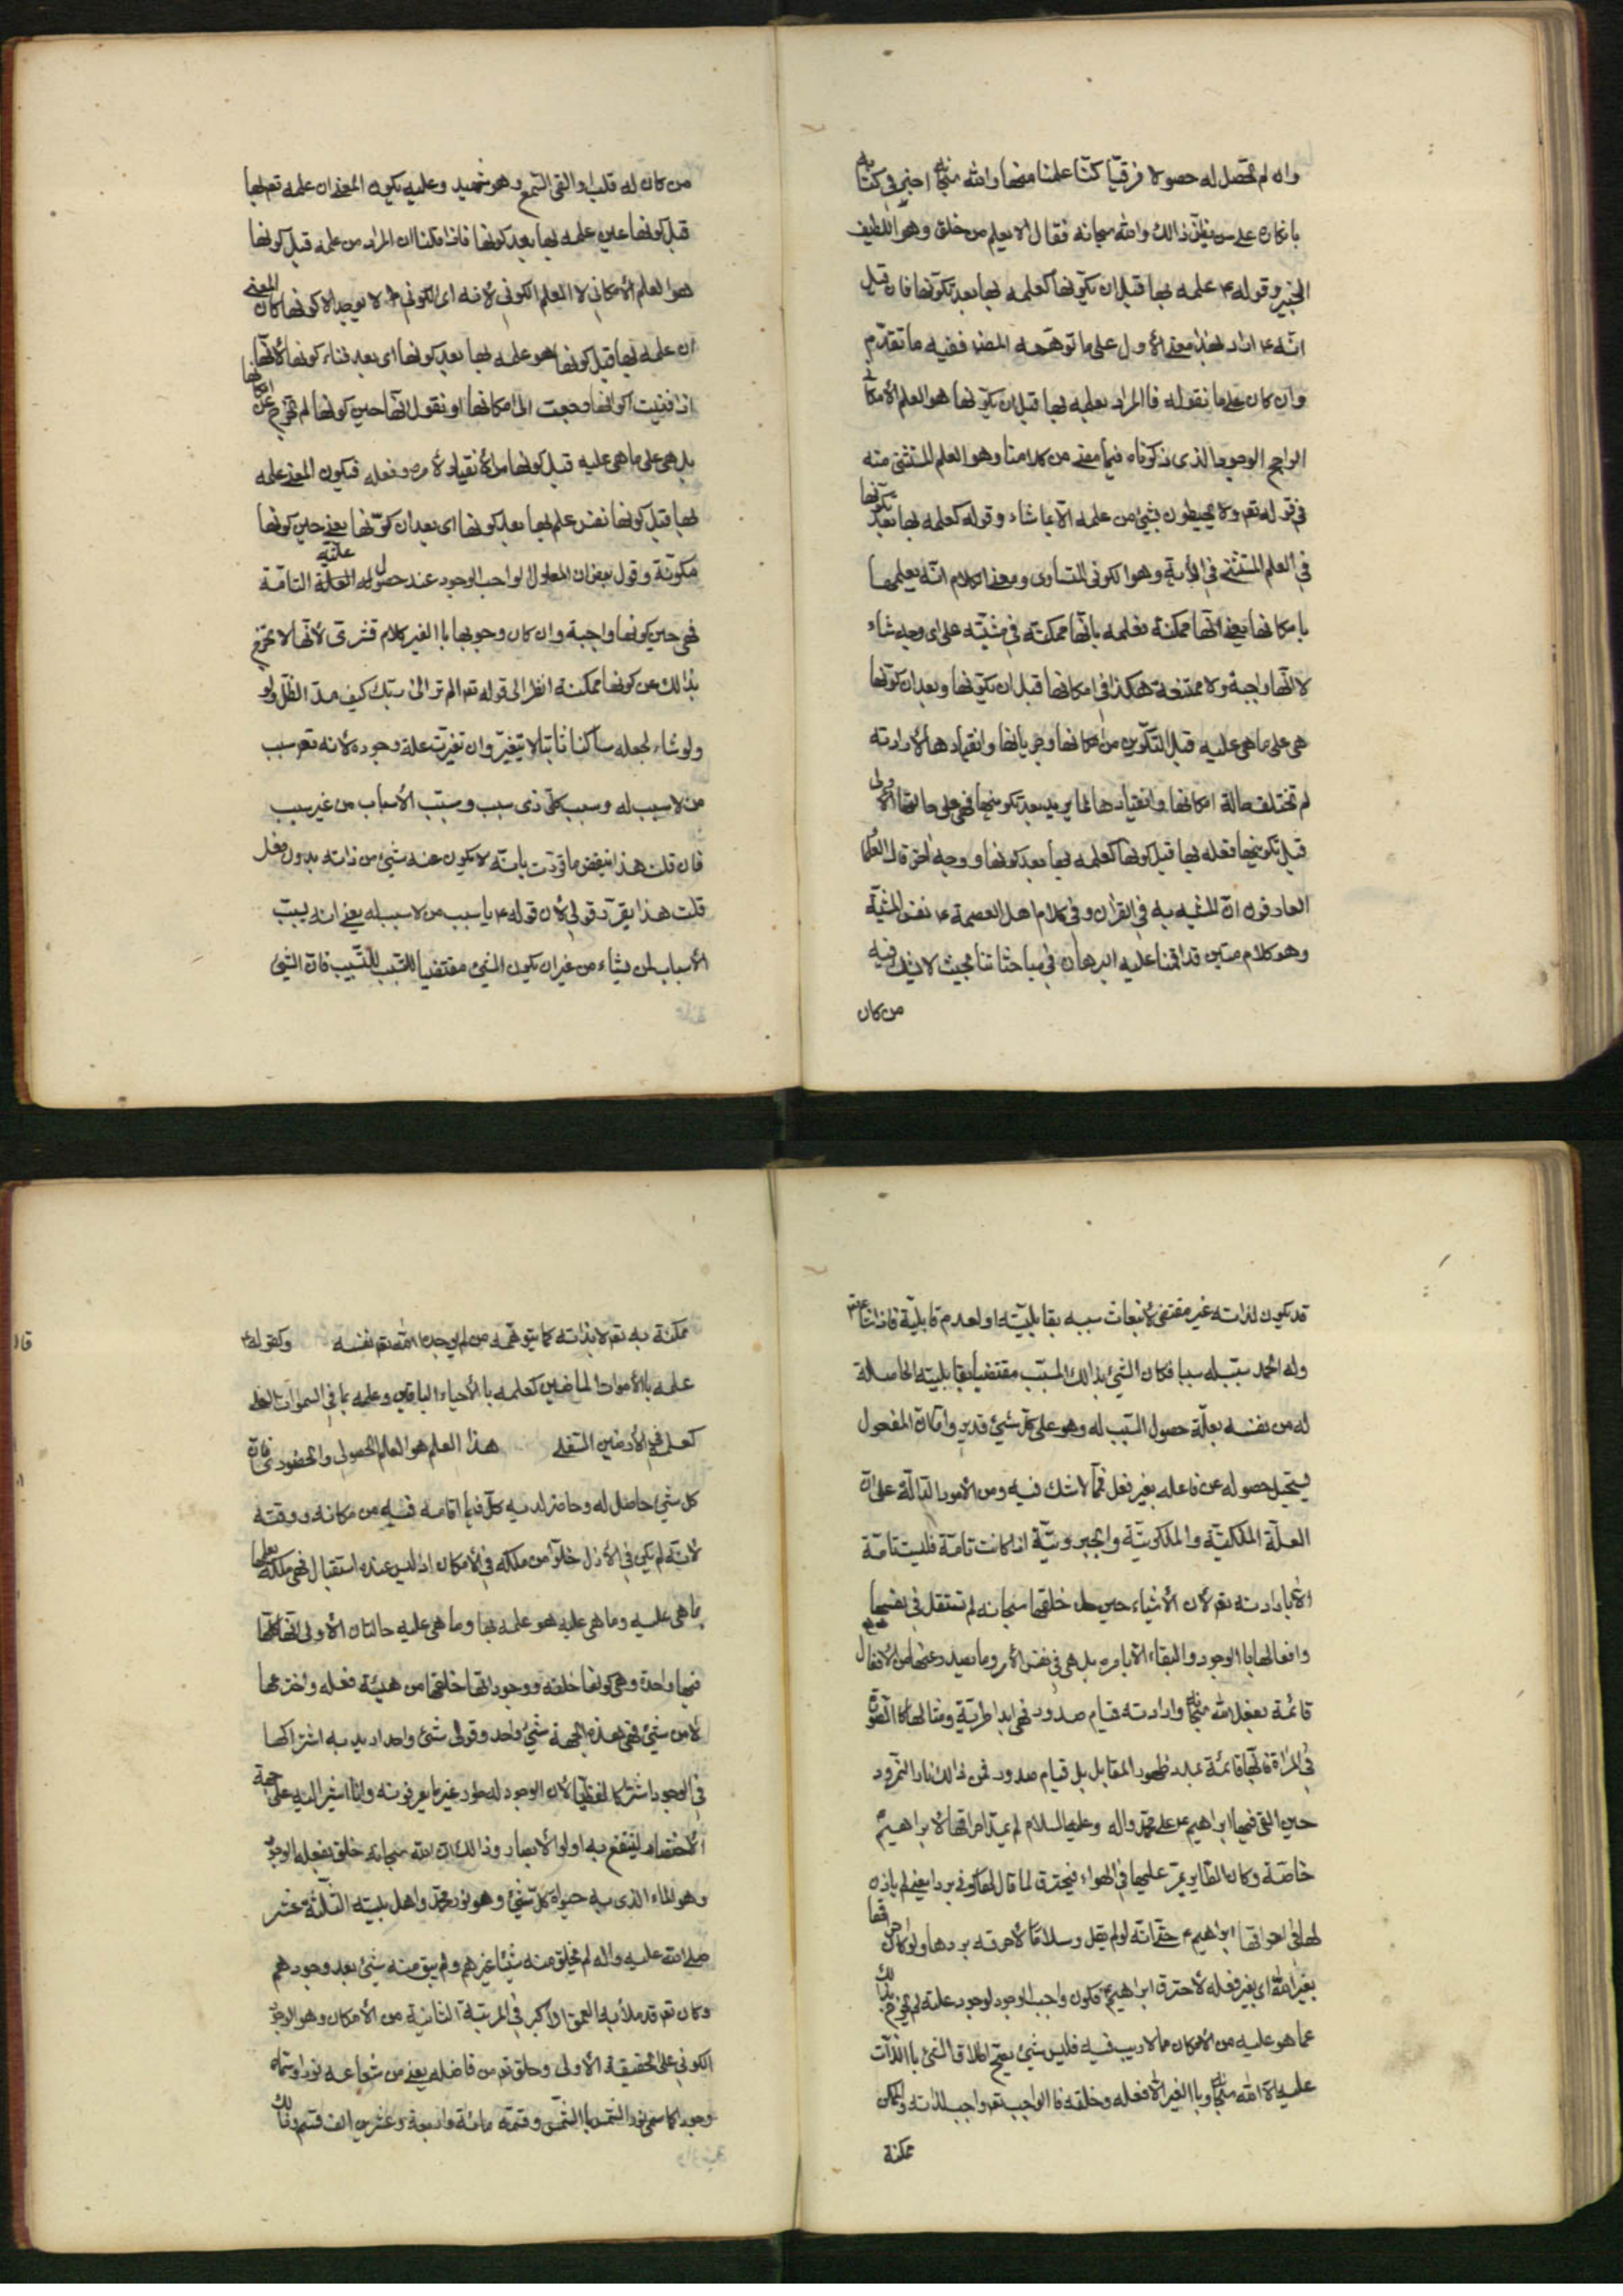 وان لم تحصل له حصولا فرقيا كنا علمنا منها والله سبحانه اخبر في كتابه
بانكاره على من يظن ذالك والله سبحانه فقال الا يعلم من خلق وهو اللطيف
الخبير وقوله ع علمه بها قبل ان يكونها كعلمه بها بعد تكونها فان قيل
انه ع اراد بهذا معنى الأول على ما توهمه المص ففيه ما تقدم
وان كان على ما نقوله فاالمراد بعلمه بها قبل ان يكونها هو العلم الأمكاني
الراجح الوجود الذى ذكرناه فيما مضى من كلامنا وهو العلم المستثنى منه
في قوله تعم ولا يحيطون بشيئ من علمه الا بما شاء وقوله كعلمه بها بعد تكونها
في العلم المستثنى في الأية وهو الكوني المتساوى ومعنى الكلام انه يعلمها
بامكانها يعنى انها ممكنة فعلمه بانها ممكنة في مشيته على اى وجه شاء
لا انها واجبة ولا ممتنعة هكذا في امكانها قبل ان يكونها وبعد ان كونها
هى على ما هى عليه قبل التكوين من امكانها وجريانها وانقيادها لأرادته
لم تختلف حالة امكانها وانقيادها لما يريد بعد تكوينها فهى على حالتها الأولى
قبل تكوينها فعلمه بها قبل كونها كعلمه بها بعد كونها ووجه اخر قال العلماء
العارفون ان المشبه به في القران وفي كلام اهل العصمة ع نفس المشبه
وهو كلام متين قد اقمنا عليه البرهان في مباحثاتنا بحيث لا يشك فيه
من كان
من كان له قلب او القى السمع وهو شهيد وعليه يكون المعنى ان علمه تعم بها
قبل كونها عين علمه بها بعد كونها فاذا قلنا ان المراد من علمه قبل كونها
هو العلم الأمكاني لا العلم الكوني لأنه اى الكوني لا يوجد الا كونها كان المعنى
ان علمه بها قبل كونها هو علمه بها بعد كونها اى بعد فناء كونها لأنها
اذا فنيت اكوانها رجعت الى امكانها او نقول انها حين كونها لم تخرج عن امكانها
بل هى على ما هى عليه قبل كونها من الأنقياد لأمره وفعله فيكون المعنى علمه
بها قبل كونها نفس علم بها بعد كونها اى بعد ان كونها يعنى حين كونها
مكونة وقول بعض ان المعلول الواجب الوجود عند حصول علته العلة التامة
فهى حين كونها واجبة وان كان وجوبها باالغير كلام قشرى لأنها لا تخرج
بذالك عن كونها ممكنة انظر الى قوله تعم الم تر الى ربك كيف مد الظل ولو
ولو شاء لجعله ساكنا ثابتا لا يتغير وان تغيرت علة وجوده لأنه تعم سبب
من لا سبب له وسبب كل ذى سبب ومسبب الأسباب من غير سبب
فان قلت هذا ينقض ما قررت بانه لا يكون عنه شيئ من ذاته بدون فعل
قلت هذا يقرر قولي لأن قوله ع يا سبب من لا سبب له يعنى انه يسبب
الأسباب لمن يشاء من غير ان يكون الشيئ مقتضيا للتسبب للتسبيب فان الشيئ
قد يكون لذاته غير مقتض لأنبعاث سببه بقابليته او لعدم قابلية فاذا شاء
وله الحمد سبب له سببا فكان الشيئ بذالك المسبب مقتضيا بقابليته الحاصلة
له من نفسه بعلة حصول السبب له وهو على كل شيئ قدير وامكان المفعول
يستحيل حصوله عن فاعله بغير فعل فمما لا شك فيه ومن الأمور الدالة على ان
العلة الملكية والملكوتية والجبروتية اذا كانت تامة فليست تامة
الا بارادته تعم لأن الأشياء حين خلقها سبحانه لم تستقل في نفسها
وافعالها باالوجود والبقاء الا بامره بل هى في نفس الأمر وما يصدر عنها من الأفعال
قائمة بفعل الله سبحانه وارادته قيام صدور فهى ابدا طرية ومثالها كاالصورة
في المراة فانها قائمة بمدد ظهور المقابل بل قيام صدور فمن ذالك نار النمرود
حين القى فيها ابراهيم عم على محمد واله وعليه السلام لم يمد احراقها لأبراهيم
خاصة وكان الطاير يمر عليها في الهواء فيحترق لما قال لها كوني بردا يعنى لم ياذن
لها في احراقها ابراهيم ع حتى انه لو لم يقل وسلاما لأحرقه بردها ولو كان حراقها
بغير الله اى بغير فعله لأحترق ابراهيم ع فكون واجب الوجود لوجود علته لم يخرج بذالك
عما هو عليه من الأمكان مما لا ريب فيه فليس شيئ يصح اطلاق الشيئ باالذات
عليه الا الله سبحانه وباالغير الا فعله وخلقه فاالواجب تعم واجب لذاته والممكن
ممكنة
ممكنة به تعم لا بذاته كما يتوهمه من لم يوجده الله تعم نفسه وكقوله ع
علمه باالأموات الماضين كعلمه باالأحياء الباقين وعلمه بما في السموات العلى
كعلمه في الأرضين السفلى هذا العلم هو العلم الحصولى والحضورى فان
كل شيئ حاصل له وحاضر لديه كل فيما اقامه فيه من مكانه ووقته
لأنه لم يكن في الأزل خلوا من ملكه في الأمكان اذ ليس عنده استقبال فهى ملكه يعلمها
بما هى عليه وما هى عليه هو علمه بها وما هى عليه حالتان الأولى انها كلها
فيها واحدة وهى كونها خلقه ووجوداتها خلقها من هيئة فعله واخترعها
لا من شيئ فهى بهذه الجهة شيئ واحد وقولى شيئ واحد اريد به اشتراكها
في الوجود اشتراكا لفظيا لأن الوجود له طور غير ما يعرفونه وانا اشير اليه على جهة
الأختصار لينتفع به اولوا الأبصار وذالك ان الله سبحانه خلق بفعله الوجود
وهو الماء الذى به حيوة كل شيئ وهو نور محمد واهل بيته الثلثة عشر
صلى الله عليه واله لم يخلق منه شيئا غيرهم ولم يبق منه شيئ بعد وجودهم
وكان تعم قد ملأ به العمق الأكبر في المرتبة الثانية من الأمكان وهو الوجود
الكوني على الحقيقة الأولى وخلق تعم من فاضله يعنى من شعاعه نورا وسماه
وجودا كما سمى نور الشمس باالشمس وقسمه مائة واربعة وعشرين الف قسم وذالك